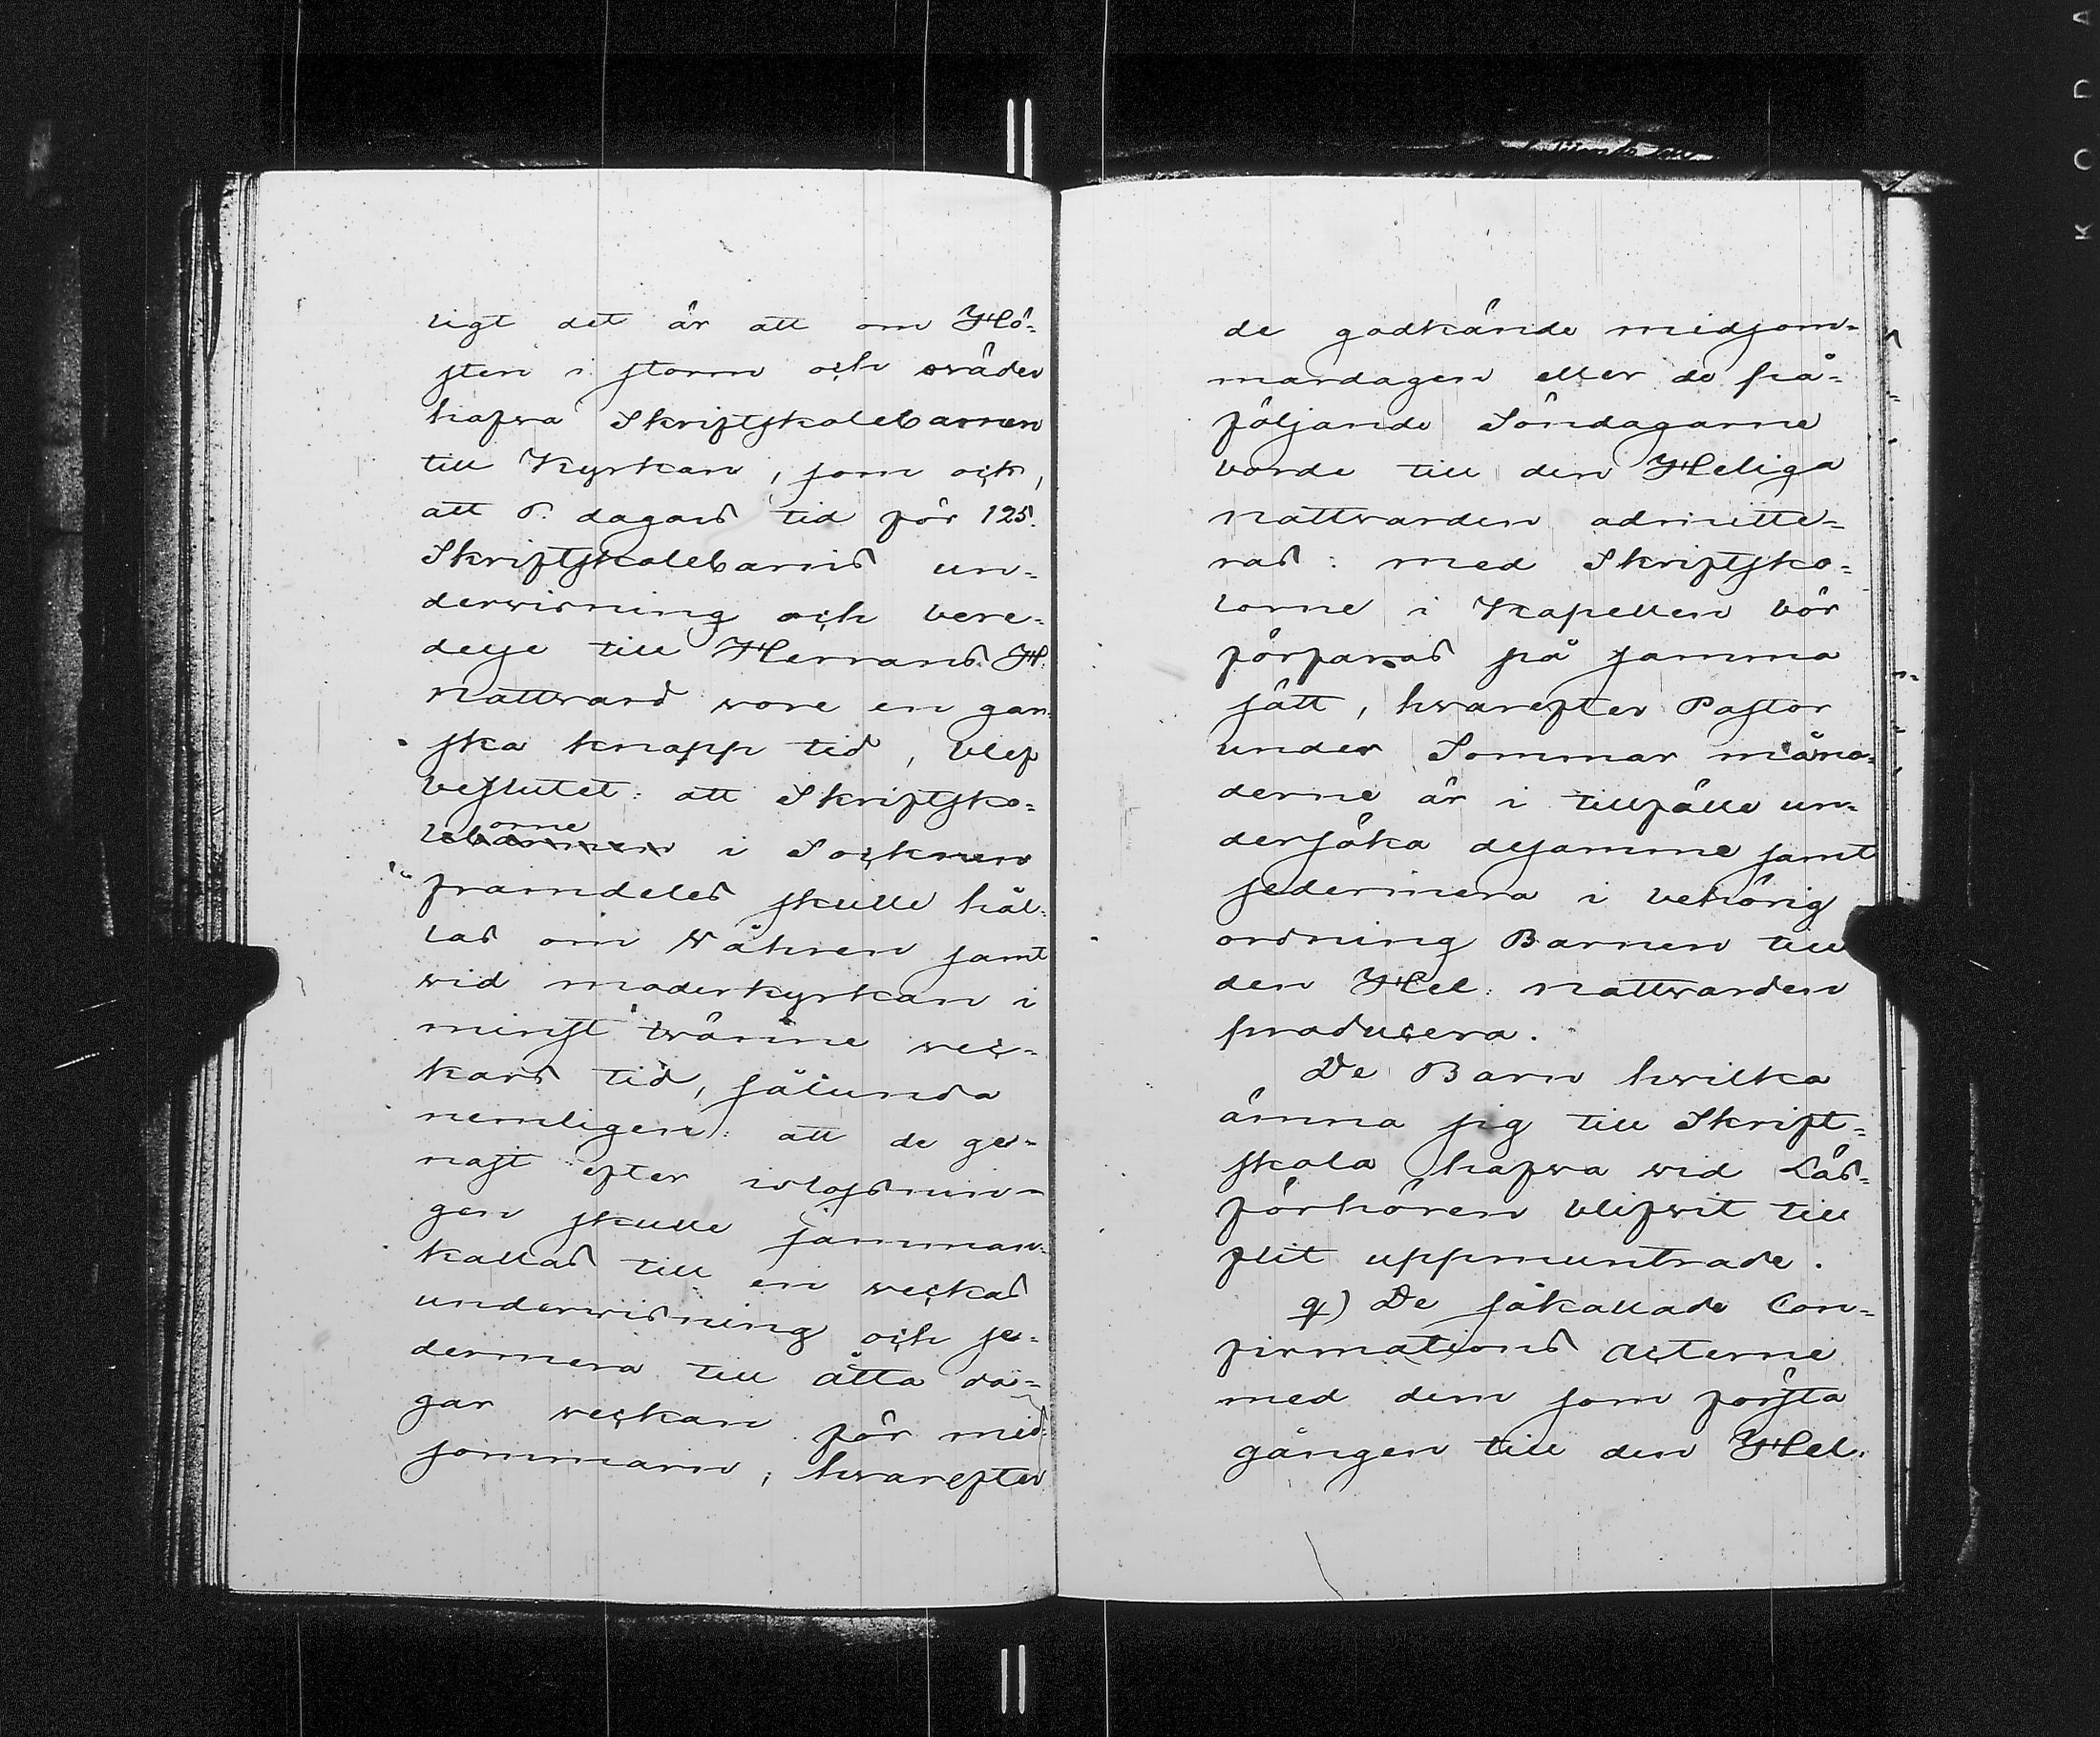 ligt det är att om Hö-
sten i storm och oväder
hafva Skriftskolebarnen
till Kyrkan, som ock,
att 8. dagars tid för 125.
Skriftskolebarns un-
dervisning och bere-
delse till Herrans H.
Nattvard vore en gan
ska knapp tid, blef
beslutet: att Skriftsko-
lorne i Socknen
framdeles skulle hål-
las om Våhren samt
vid moderkyrkan i
minst tvänne vec-
kors tid, sålunda
nemligen: att de ge-
nast efter islossnin-
gen skulle samman-
kallas till en veckas
undervisning och se-
dermera till åtta da-
gar veckan för mid-
sommarn, hvarefter
de godkände midsom-
mardagen eller de på-
följande Söndagarne
borde till den Heliga
Nattvarden admitte-
ras: med Skriftsko-
lorne i Kapellen bör
förfaras på samma
sätt, hvarefter Pastor
under Sommar måna-
derne är i tillfälle un-
dersöka desamme samt
sedermera i behörig
ordning Barnen till
den Hel. Nattvarden
producera.
De Barn hvilka
ämna sig till Skrift-
skola hafva vid Läs-
förhören blifvit till
flit uppmuntrade.
q) De såkallade Con-
firmations Acterne
med dem som första
gången till den Hel.
KODA